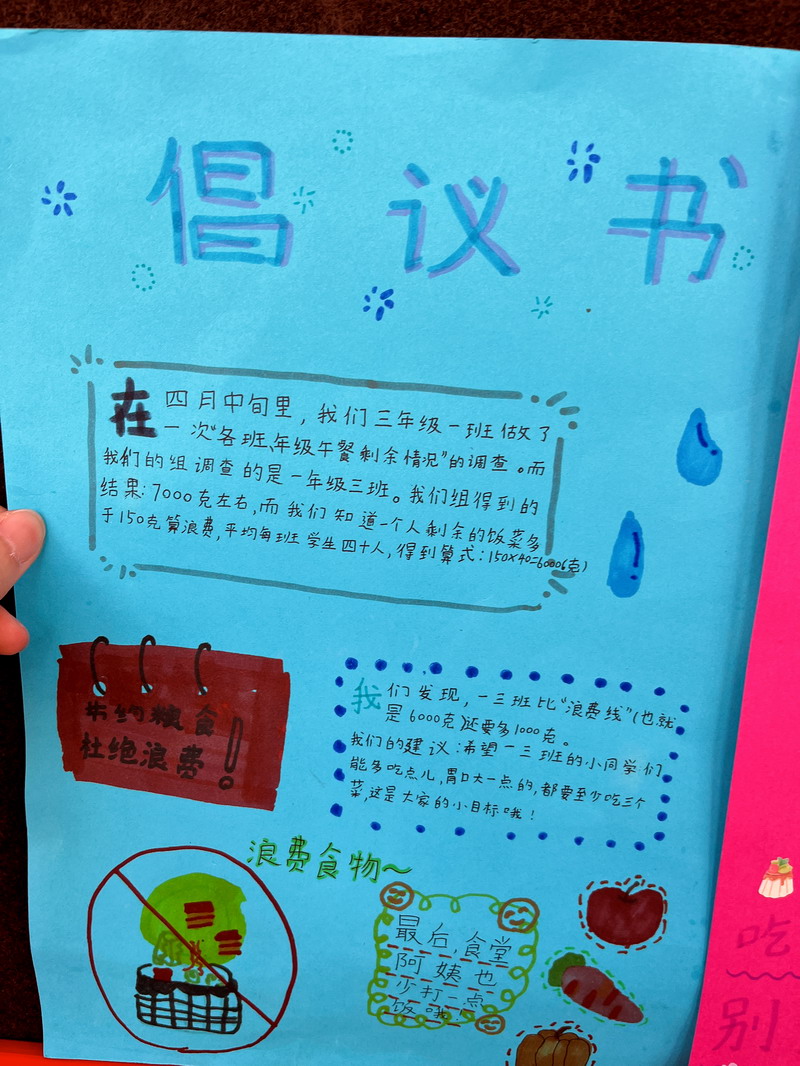 倡议书
在四月中旬里，我们三年级一班做了
一次“各班、年级午餐剩余情况”的调查。而
我们的组调查的是一年级三班。我们组得到的
结果：7000克左右，而我们知道一个人剩余的饭菜多
于150克算浪费，平均每班学生四十人，得到算式：150×40=6000(克)
节约粮食
杜绝浪费！
我们发现，一三班比“浪费线”(也就
是6000克)还要多1000克。
我们的建议：希望一三班的小同学们
能多吃点儿，胃口大一点的，都要至少吃三个
菜，这是大家的小目标哦！
浪费食物～
最后，食堂
阿姨也
少打一点
饭哦
吃
别